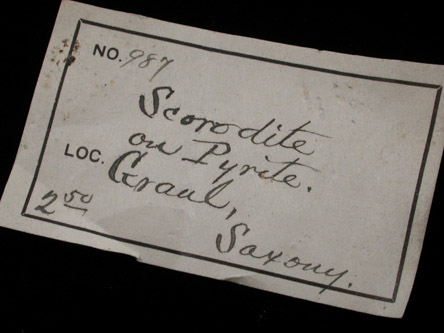 NO. 987
Scorodite
on Pyrite.
LOC. Graul,
Saxony.
2 50